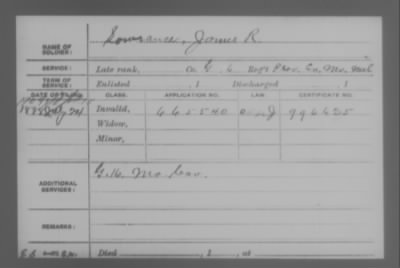 NAME OF SOLDIER: Lowrance, James R.
SERVICE: Late rank, Co. G, 6 Reg't Prov. En. Mo. Mil.
TERM OF SERVICE: Enlisted , 1 Discharged , 1
DATE OF FILING. CLASS. APPLICATION NO. LAW. CERTIFICATE NO.
Invalid, 665540 996635
Widow,
Minor,
ADDITIONAL SERVICES: Mo Cav.
REMARKS:
Died , 1 , at